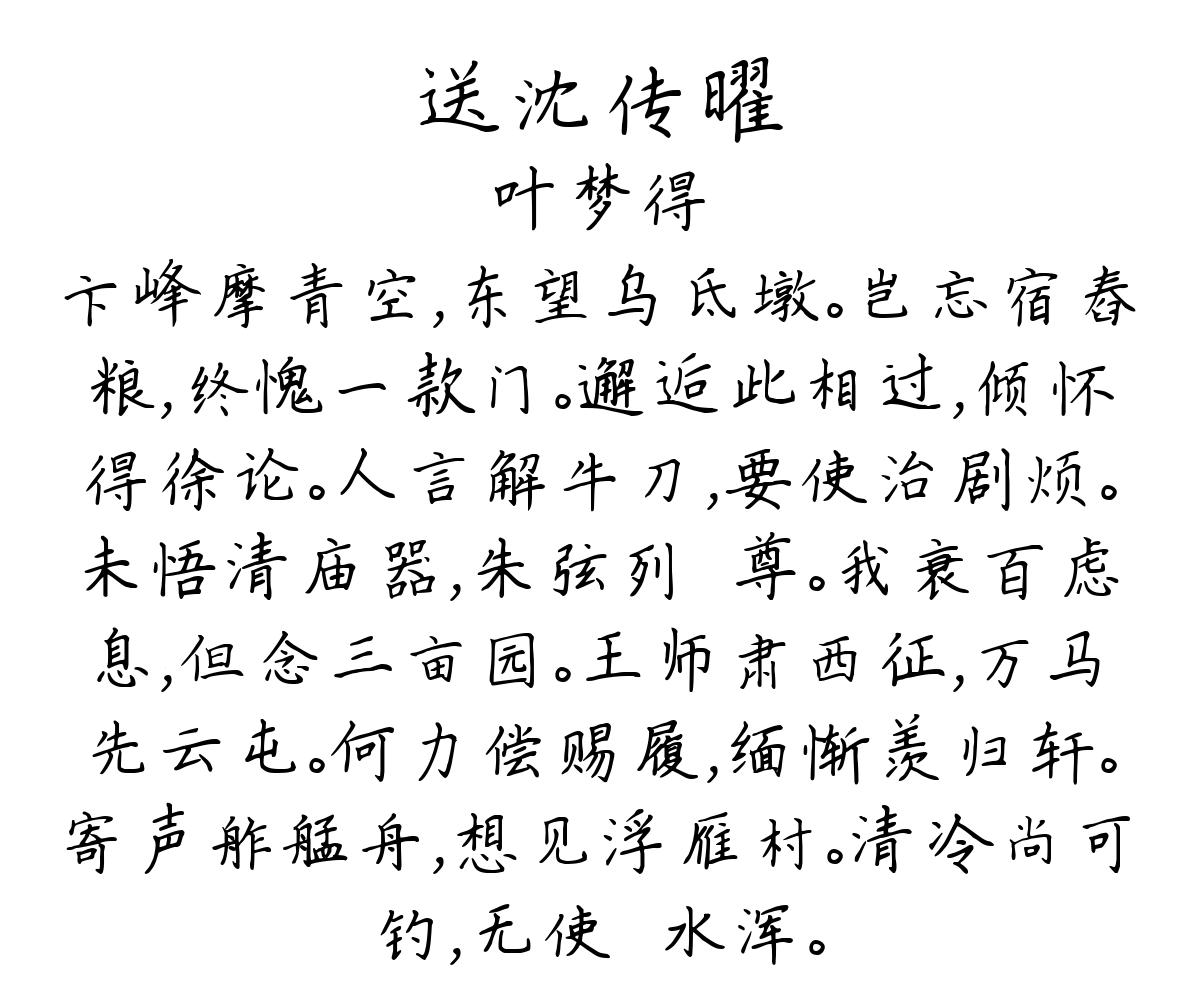 送沈传曜
叶梦得
卞峰摩青空,东望乌氐墩。岂忘宿舂
粮,终愧一款门。邂逅此相过,倾怀
得徐论。人言解牛刀,要使治剧烦。
未悟清庙器,朱弦列 尊。我衰百虑
息,但念三亩园。王师肃西征,万马
先云屯。何力偿赐履,缅惭羡归轩。
寄声舴艋舟,想见浮雁村。清冷尚可
钓,无使 水浑。